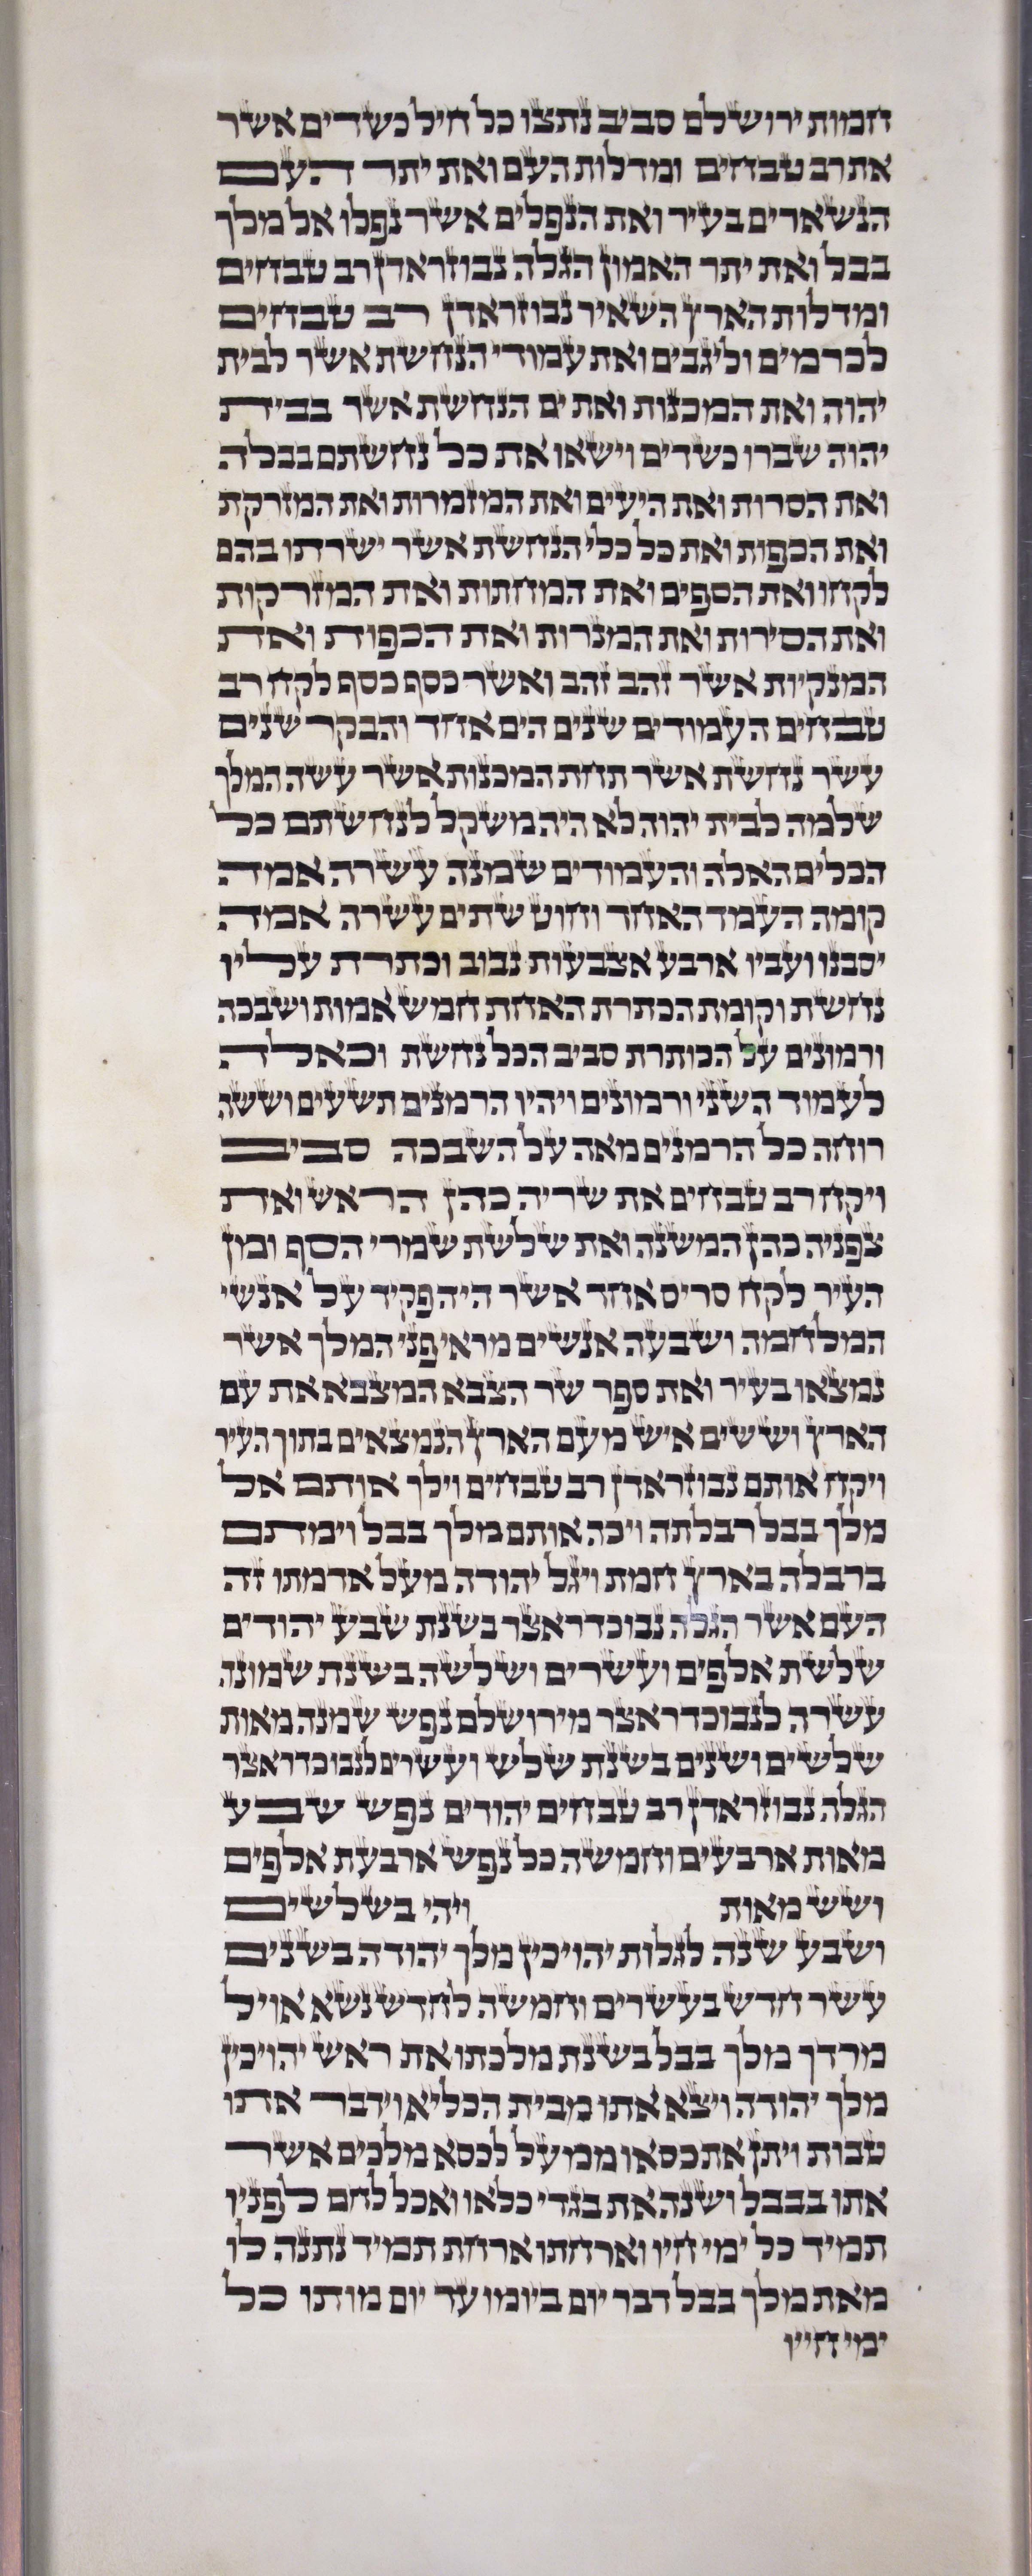 חמות ירושלם סביב נתצו כל חיל כשדים אשר
את רב טבחים ומדלות העם ואת יתר העם
הנשארים בעיר ואת הנפלים אשר נפלו אל מלך
בבל ואת יתר האמון הגלה נבוזראדן רב טבחים
ומדלות הארץ השאיר נבוזראדן רב טבחים
לכרמים וליגבים ואת עמודי הנחשת אשר לבית
יהוה ואת המכנות ואת ים הנחשת אשר בבית
יהוה שברו כשדים וישאו את כל נחשתם בבלה
ואת הסרות ואת היעים ואת המזמרות ואת המזרקת
ואת הכפות ואת כל כלי הנחשת אשר ישרתו בהם
לקחו ואת הספים ואת המחתות ואת המזרקות
ואת הסירות ואת המנרות ואת הכפות ואת
המנקיות אשר זהב זהב ואשר כסף כסף לקח רב
טבחים העמודים שנים הים אחד והבקר שנים
עשר נחשת אשר תחת המכנות אשר עשה המלך
שלמה לבית יהוה לא היה משקל לנחשתם כל
הכלים האלה והעמודים שמנה עשרה אמה
קומה העמד האחד וחוט שתים עשרה אמה
יסבנו ועביו ארבע אצבעות נבוב וכתרת עליו
נחשת וקומת הכתרת האחת חמש אמות ושבכה
ורמונים על הכותרת סביב הכל נחשת וכאלה
לעמוד השני ורמונים ויהיו הרמנים תשעים וששה
רוחה כל הרמנים מאה על השבכה סביב
ויקח רב טבחים את שריה כהן הראש ואת
צפניה כהן המשנה ואת שלשת שמרי הסף ומן
העיר לקח סריס אחד אשר היה פקיד על אנשי
המלחמה ושבעה אנשים מראי פני המלך אשר
נמצאו בעיר ואת ספר שר הצבא המצבא את עם
הארץ וששים איש מעם הארץ הנמצאים בתוך העיר
ויקח אותם נבוזראדן רב טבחים וילך אותם אל
מלך בבל רבלתה ויכה אותם מלך בבל וימתם
ברבלה בארץ חמת ויגל יהודה מעל אדמתו זה
העם אשר הגלה נבוכדראצר בשנת שבע יהודים
שלשת אלפים ועשרים ושלשה בשנת שמונה
עשרה לנבוכדראצר מירושלם נפש שמנה מאות
שלשים ושנים בשנת שלש ועשרים לנבוכדראצר
הגלה נבוזראדן רב טבחים יהודים נפש שבע
מאות ארבעים וחמשה כל נפש ארבעת אלפים
ושש מאות ויהי בשלשים
ושבע שנה לגלות יהויכין מלך יהודה בשנים
עשר חדש בעשרים וחמשה לחדש נשא אויל
מרדך מלך בבל בשנת מלכתו את ראש יהויכין
מלך יהודה ויצא אתו מבית הכליא וידבר אתו
טבות ויתן את כסאו ממעל לכסא מלכים אשר
אתו בבבל ושנה את בגדי כלאו ואכל לחם לפניו
תמיד כל ימי חיו וארחתו ארחת תמיד נתנה לו
מאת מלך בבל דבר יום ביומו עד יום מותו כל
ימי חייו